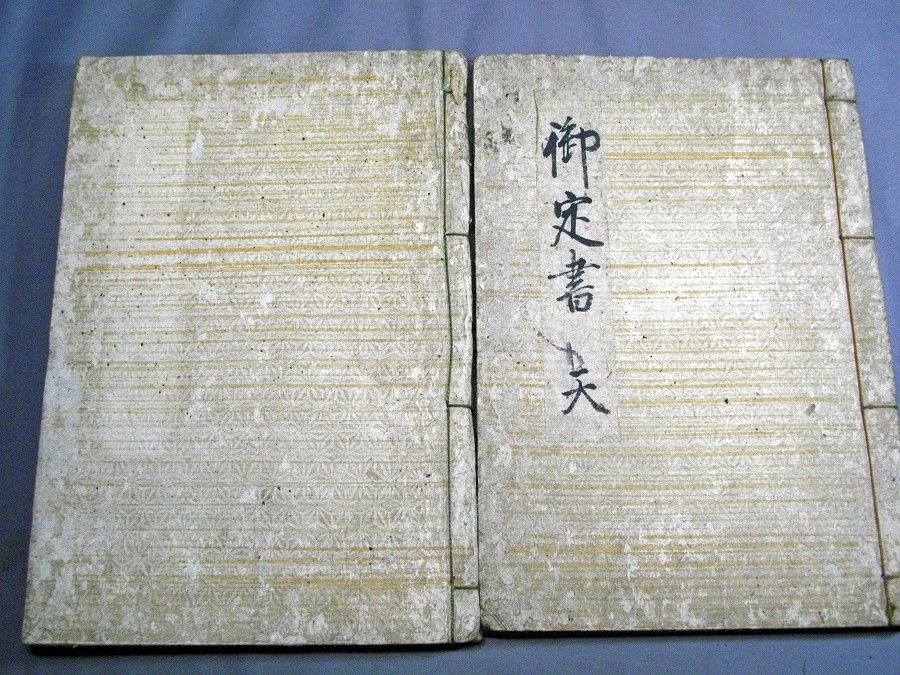 御定書 天